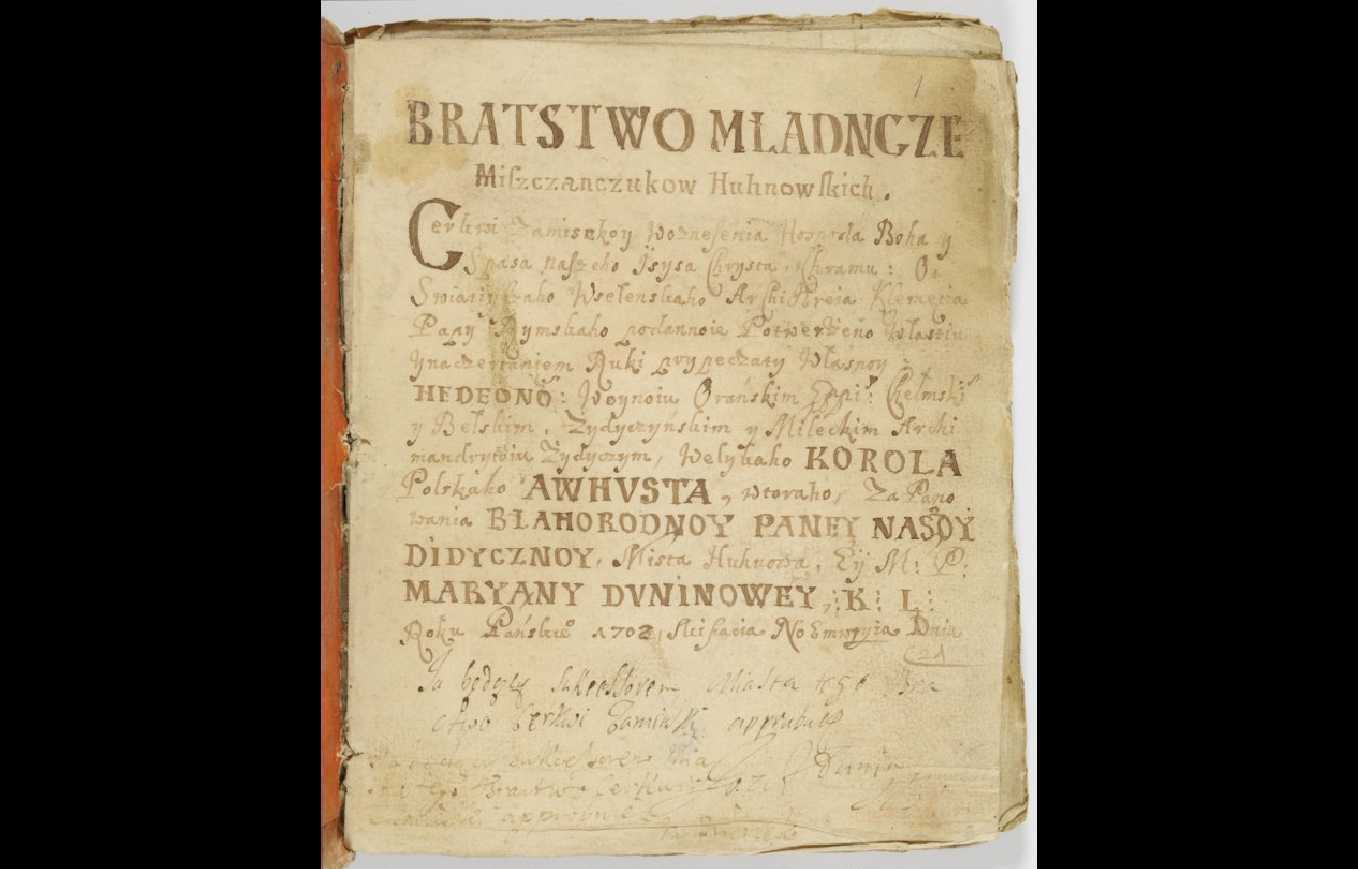 1
BRATSTWO MŁADNCZE
Miſzczanczukow Huhnowſkich.
Cerkwi Zamiskoy Woznesenia Hospoda Boha y
Spasa naſzeho Isysa Chrysta, Chramu: O
Wselenskaho Archi Klemẽtia
Papy Rymskaho podannoie Potwerżeno Własnu
ynaczertaniem Ruki prypeczaty Własnoy
HEDEONÕ: Woynoiu Orańskim Eppĩ: Chełmskĩ
y Bełskim, Żydyczyńskim y Mileckim Archi
mandrytõiu Żydyczym, Welykaho KOROLA
Polskaho AWHVSTA, wtoraho, Za Pano
wania BŁAHORODNOY PANEY NASOY
DIDYCZNOY, Mista Huhnowa, Eÿ M: P:
MARYANY DVNINOWEY, :K: L:
Roku Pańskiº 1702, Noemwryia Dnia
21
Ja będący sukcessorem Miasta tego Bra
ctwo Cerkwi approbuię
sukcessorem Mia
tego Bractwo Cerkwi
approbuię